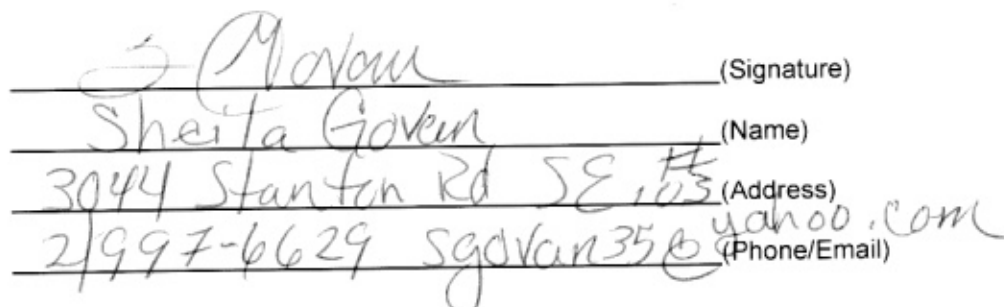 S Govan (Signature)
Sheila Govan (Name)
3044 Stanton Rd SE, #103 (Address)
2/997-6629 sgovan35@yahoo.com (Phone/Email)